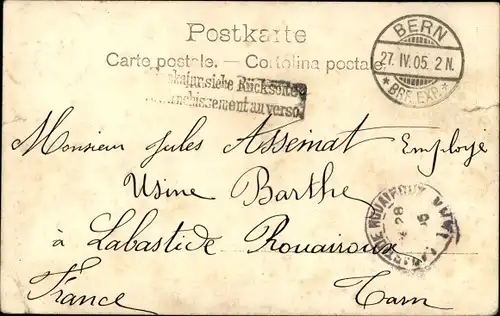 Postkarte
Carte postale. — Cartolina postale.
BERN
27. IV. 05. 2 N.
* BRF. EXP. *
siehe Rückseite
au verso.
Monsieur Jules Asseinat Employé
Usine Barthe
à Labastide Rouairoux
France Tarn
ROUAIROUX
28